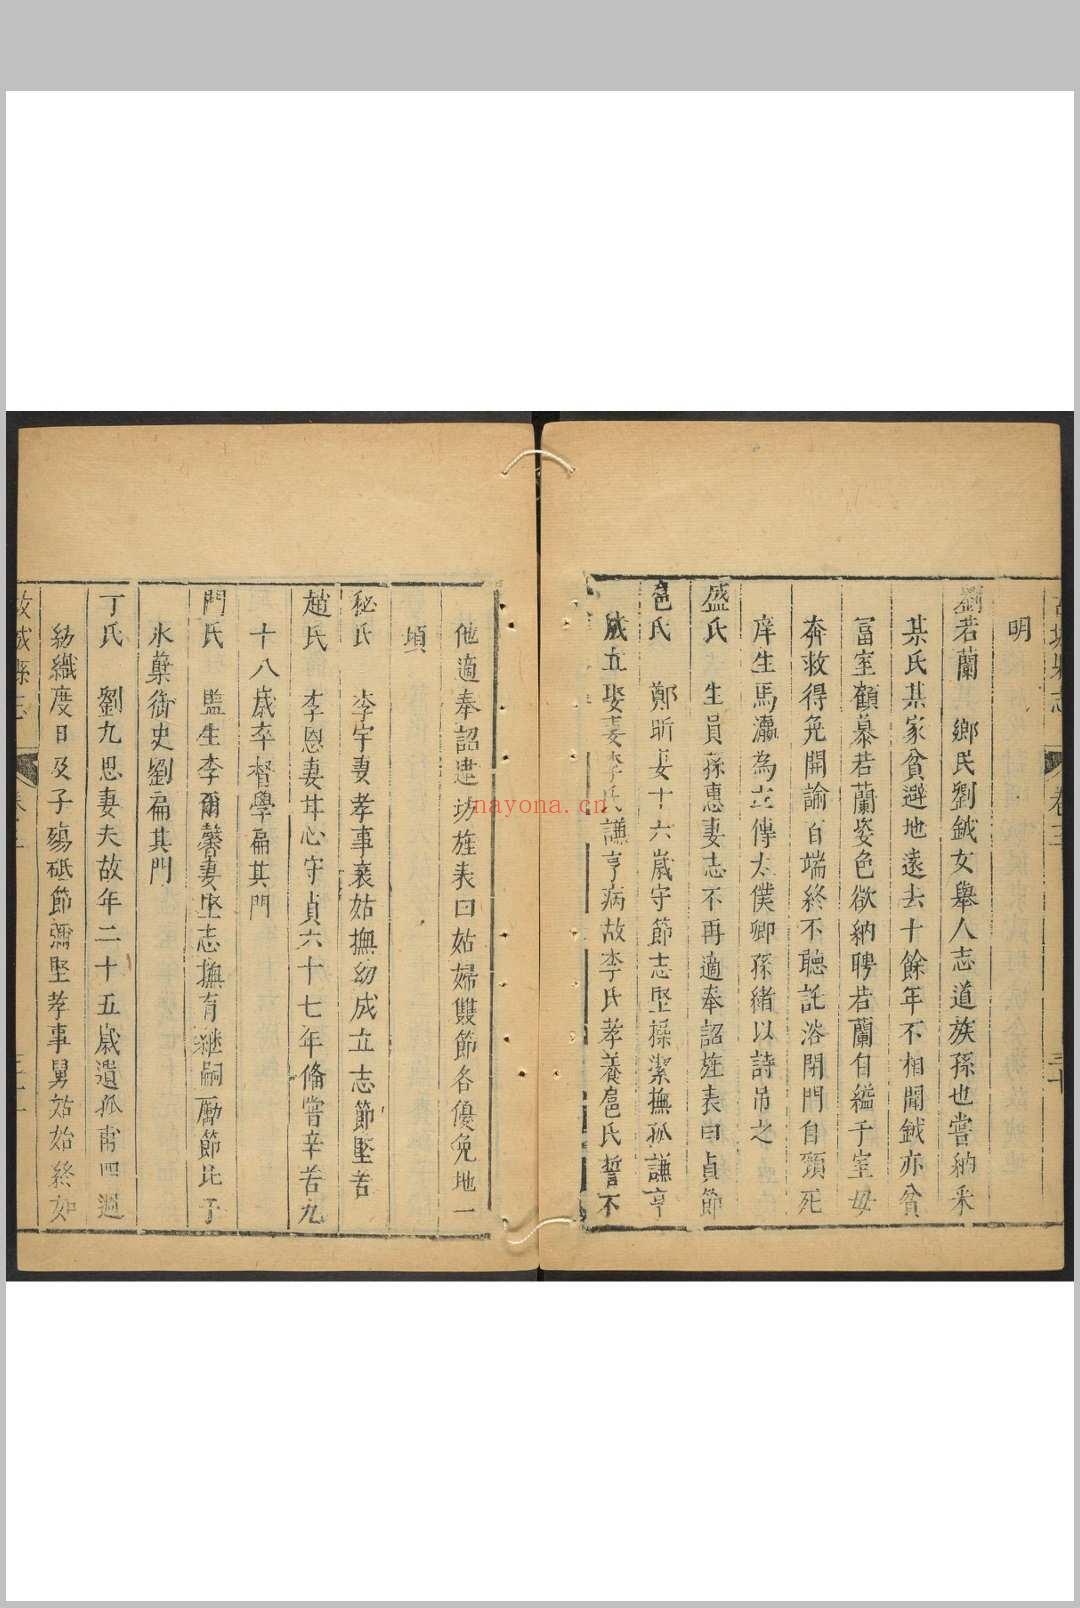 故城縣志 卷三 三十
明
劉若蘭 鄉民劉鉞女舉人志道族孫也嘗納采
某氏某家貧避地遠去十餘年不相聞鉞亦貧
富室顧慕若蘭姿色欲納聘若蘭自縊于室母
奔救得免開諭百端終不聽託浴閉門自頸死
庠生馬灜為立傳太僕卿孫緒以詩吊之
盛氏 生員孫惠妻志不再適奉詔旌表曰貞節
扈氏 鄭昕妻十六歲守節志堅操潔撫孤謙亨
成立娶妻李氏謙亨病故李氏孝養扈氏誓不
他適奉詔建坊旌表曰姑婦雙節各優免地一
頃
秘氏 李宇妻孝事衰姑撫幼成立志節堅苦
趙氏 李恩妻甘心守貞六十七年備嘗辛苦九
十八歲卒督學扁其門
門氏 監生李爾馨妻堅志撫育繼嗣勵節比于
氷蘗御史劉扁其門
丁氏 劉九思妻夫故年二十五歲遺孤甫四週
紡織度日及子殤砥節彌堅孝事舅姑始終如
故城縣志
nayona.cn